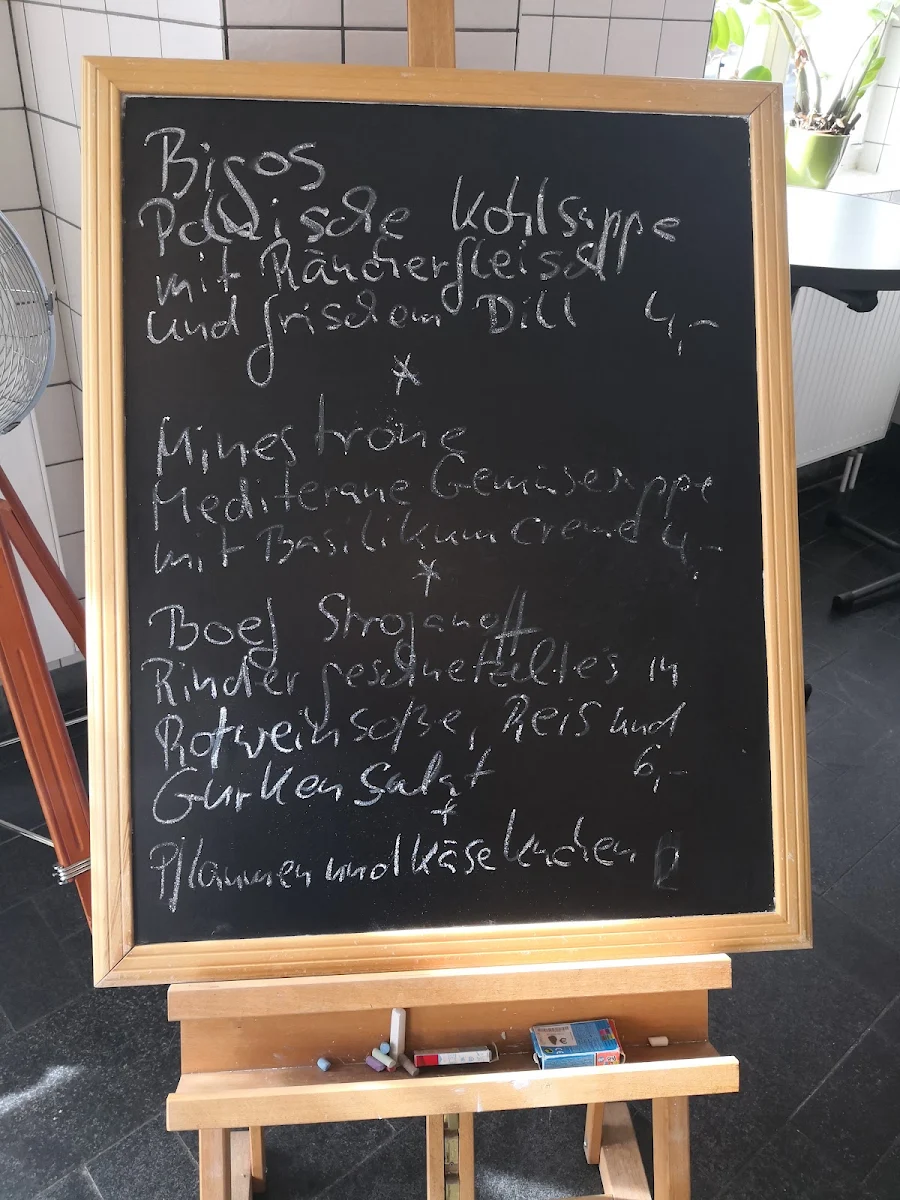 Bigos
Polnische Kohlsuppe
mit Räucherfleisch
und frischem Dill 4,-
*
Minestrone
Mediterane Gemüsesuppe
mit Basilikumcreme 4,-
*
Boef Stroganoff
Rindergeschnetzeltes in
Rotweinsoße, Reis und
Gurkensalat 6,-
*
Pflaumen und Käsekuchen 2